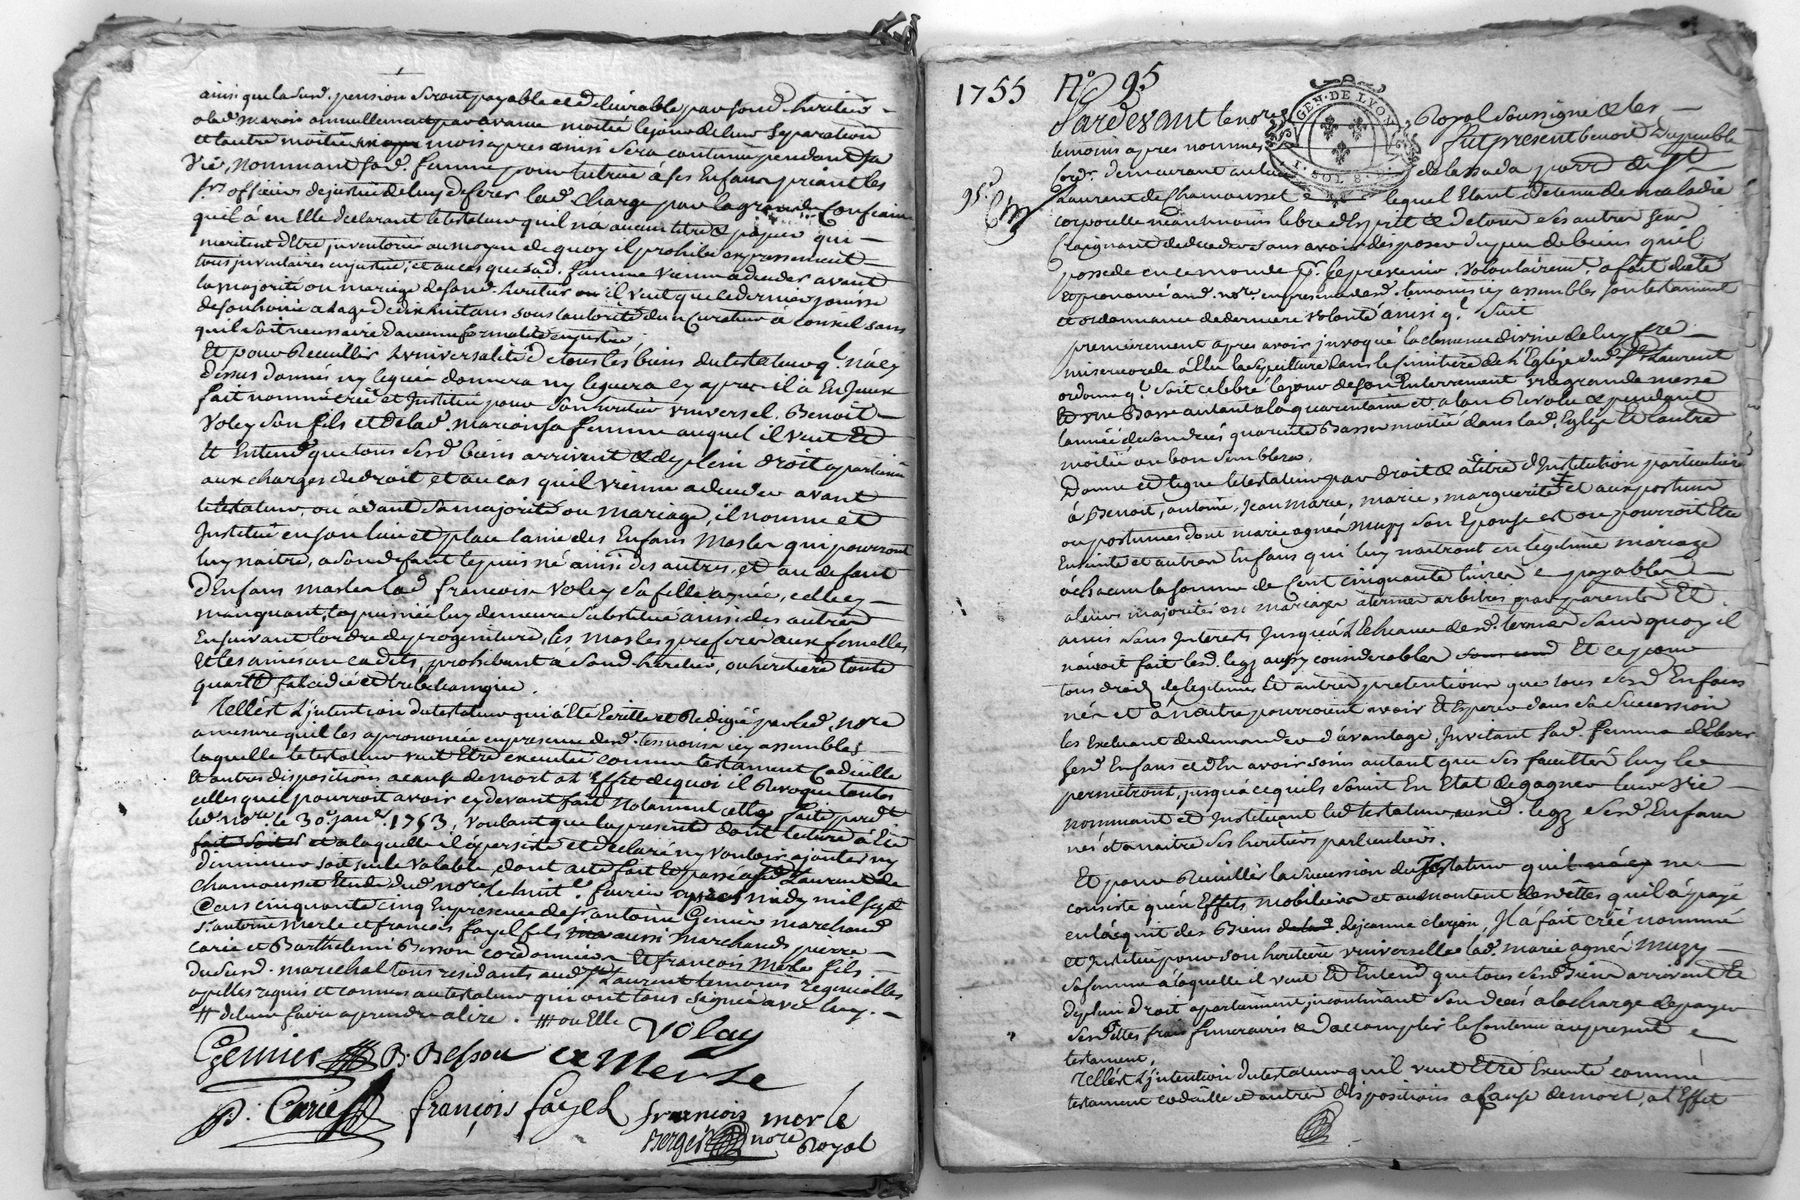 ainsi que la susd. pension seront payable et delivrable par sond. heritier
a lad. Marion annuellement par avance moitié le jour de leur separation
et l'autre moitié six mois apres ainsi sera continué pendant sa
Vie, nommant sad. femme pour tutrice à ses Enfans priant les
srs officiers de justice de luy deferer lad. charge par la grande Confiance
quil à en Elle declarant le testateur quil n'a aucun titre & papier qui
meritent d'Etre inventorié au moyen de quoy il prohibe expressement
tous inventaires en justice; et au cas que sad. femme vienne a deceder avant
la majorité ou mariage de sond. heritier il veut que ce dernier jouisse
de son hoirie a l'age de dix huit ans sous l'autorité d'un Curateur à conseil sans
quil soit necessaire d'aucune formalité en justice
Et pour Recueillir L'universalité de tous les biens du testateur q. n'a cy
dessus donnés ny legués donnera ny leguera cy apres il à
fait nommé créé et Institué pour Son heritier universel Benoit
Voley Son fils et de lad. Marion sa femme auquel il veut Et
Et Entend que tous sesd. biens arrivent & de plein droit apartienne
aux charges de droit et au cas quil vienne a deceder avant
le testateur, ou avant sa majorité ou mariage, il nomme et
Institue en son lieu et place l'ainé des Enfans Masles qui pourront
luy naitre, a son defaut le puis né ainsi des autres, et au defaut
d'Enfans masles lad. francoise Voley sa fille ainée, celle cy
manquant, la puisnée luy demeure substituée ainsi des autres
En suivant l'ordre de progeniture, les masles preferés aux femelles
Et les ainés au cadets, prohibant à sond. heritier, ou heritiere toute
quarte falcidie et trebelianique.
Telle st L'intention du testateur qui a Eté Ecritte et Redigée par led. nore
a mesure quil les a prononcée en presence desd. temoins icy assemblés
laquelle le testateur veut Etre executée comme testament Codicille
Et autres dispositions a cause de mort a l'Effet de quoi il Revoque toutes
celles quil pourroit avoir cy devant fait Notament celle faite pard.t
led. nore. le 30e. janr. 1753, voulant que la presente dont lecture a Eté
faite soit et a laquelle il a persisté et declaré ny vouloir ajouter ny
diminuer soit seule valable, dont acte fait et passé aud. St Laurent de
chamousset Etude dud. nore. le huit e. fevrier apres midy mil sept
Cens cinquante cinq En presence de sr. antoine Genier marchand
Sr. antoine Merle et francois fayel fils aussi marchands pierre
Carie et Barthelemi Besson cordonnier Et francois Merle fils
dusud. marechal tous residants aud. St Laurent temoins
apellés requis et connus au testateur qui ont tous signé avec luy.
# de luy faire aprendre a lire. ## ou Elle
Volay
Genier B. Besson a Merle
p. Carie françois fayel francois merle
Berger nore Royal
1755 No 95
GEN. DE LYON
SOL
95e
Pardevant le nore Royal Soussigné & les
temoins apres nommés fut present benoit Dupeuble
demeurant au lieu de la parr. de St
Laurent de Chamousset lequel Etant detenu de maladie
corporelle néantmoins libre d'Esprit & de tous ses autres sens
Craignant de deceder sans avoir disposer du peu de biens quil
possede en ce monde pr. le prevenir Volontairemt. a fait dicté
Et prononcé aud. nore. en presence desd. temoins icy assemblés son testament
et ordonnance de derniere volonté ainsi q. suit
premierement apres avoir invoqué la clemence divine de luy fre
misericorde a Elu la sepulture dans le simitiere de l'Eglise dud. St Laurent
ordonne q. soit celebré le jour de son Enterrement une grande messe
Et une Basse autant a la quarantaine et a l'an Revolu & pendant
l'année de son deces quarante Basses moitié dans lad. Eglise Et l'autre
moitié ou bon semblera.
Donne et legue le testateur par droit & a titre d'Institution particuliere
à Benoit, antoine, Jean Marie, marie, marguerite et aux postume
ou postumes dont marie agnés Muzy son Epouse est ou pourroit Etre
Enceinte et autres Enfans qui luy naitront en legitime mariage
à chacun la somme de Cent cinquante livres payables
a leurs majorités ou mariages a termes arbitrés par parents Et
amis sans Interests Jusqu'a L'Echeance desd. termes sans quoy il
n'auroit fait lesd. legz aussy considerables Et ce pour
tous droits de legitime Et autres pretentions que tous sesd. Enfans
nés et à naitre pourroient avoir Et Esperer dans sa succession
les Excluant de demander d'avantage, Invitant sad. femme d'Elever
sesd. Enfans et d'En avoir soins autant que ses facultés luy le
permetront, jusqu'a ce quils soient En Etat de gagner leur vie
nommant et Instituant led. testateur, aud. legz sesd. Enfans
nés et a naitre ses heritiers particuliers.
Et pour Recueillir la succession du Testateur qui ne
consiste qu'en Effets mobiliers et au montant des dettes quil à payé
en l'acquit des Biens de Jeanne clerjon, Il à fait créé nommé
et Institué pour son heritiere universelle lad. marie agnés Muzy
sa femme à laquelle il veut Et Entend que tous sesd. biens arrivent Et
de plein droit apartiennent incontinant Son decés a la charge de payer
sesd. dettes frais funeraires & d'accomplir le contenu au present
testament.
Telle st L'intention du testateur quil veut Etre Executé comme
testament codicille et autres dispositions a Cause de mort, a l'Effet